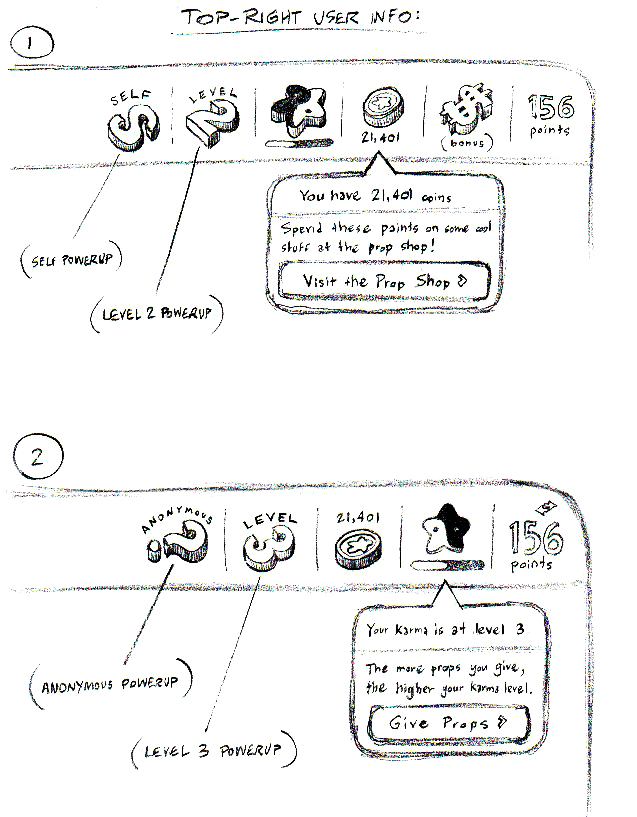 TOP-RIGHT USER INFO:
1
SELF
S
LEVEL
2
21,401
(bonus)
156
points
You have 21,401 coins
Spend these points on some cool
stuff at the prop shop!
Visit the Prop Shop »
(SELF POWERUP)
(LEVEL 2 POWERUP)
2
ANONYMOUS
?
LEVEL
3
21,401
156
points
Your Karma is at level 3
The more props you give,
the higher your karma level.
Give Props »
(ANONYMOUS POWERUP)
(LEVEL 3 POWERUP)